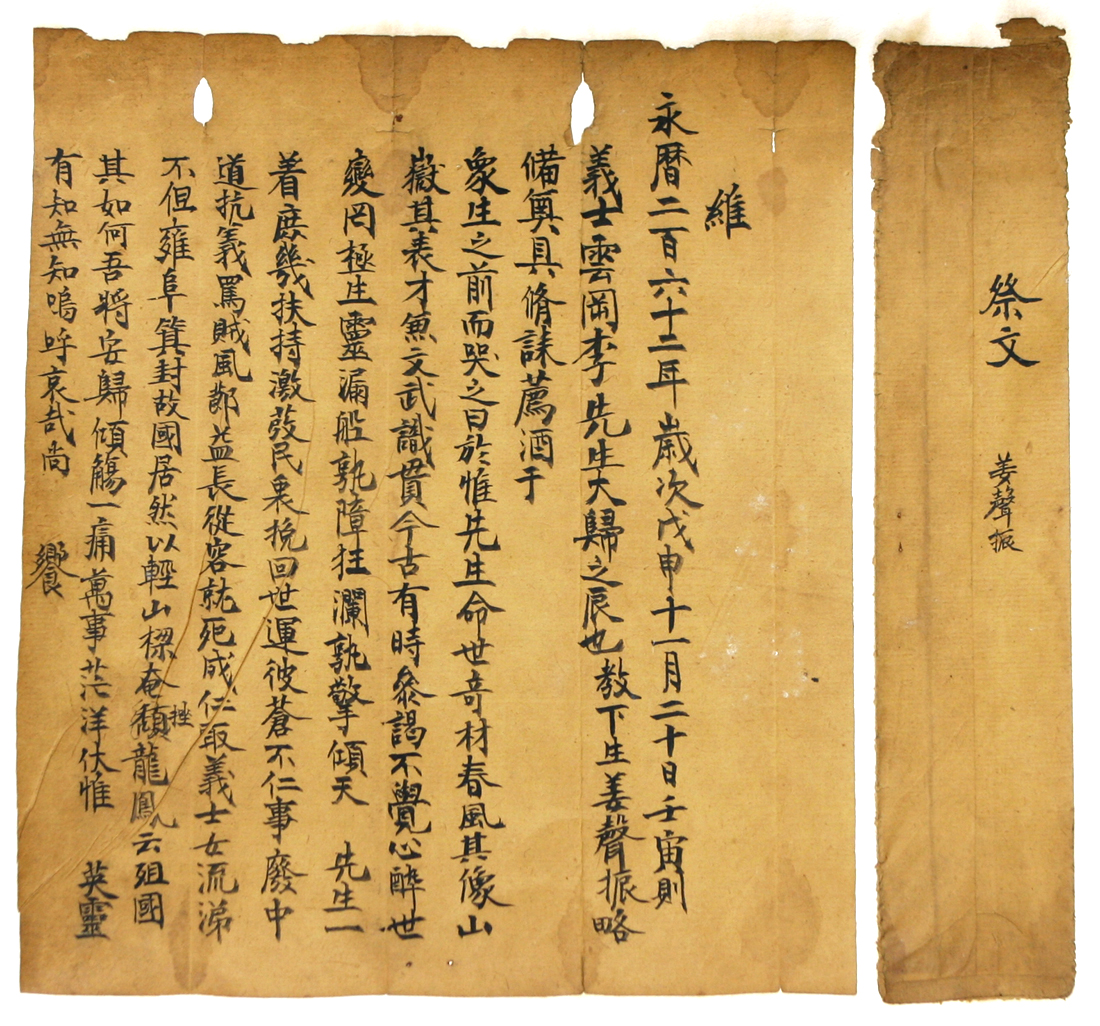 祭文
姜聲振
維
永曆二百六十二年歲次戊申十一月二十日壬寅則
義士雲岡李先生大歸之辰也教下生姜聲振略
備奠具脩誄薦酒于
象生之前而哭之曰於惟先生命世奇材春風其像山
嶽其表才兼文武識貫今古有時參謁不覺心醉世
變罔極生靈漏船孰障狂瀾孰擎傾天 先生一
着庶幾扶持激發民衆挽回世運彼蒼不仁事廢中
道抗義罵賊風節益長從容就死成仁取義士女流涕
不但雍阜箕封故國居然以輕山樑奄頹摧龍鳳云殂國
其如何吾將安歸傾觴一痛萬事茫洋伏惟 英靈
有知無知嗚呼哀哉尚
饗